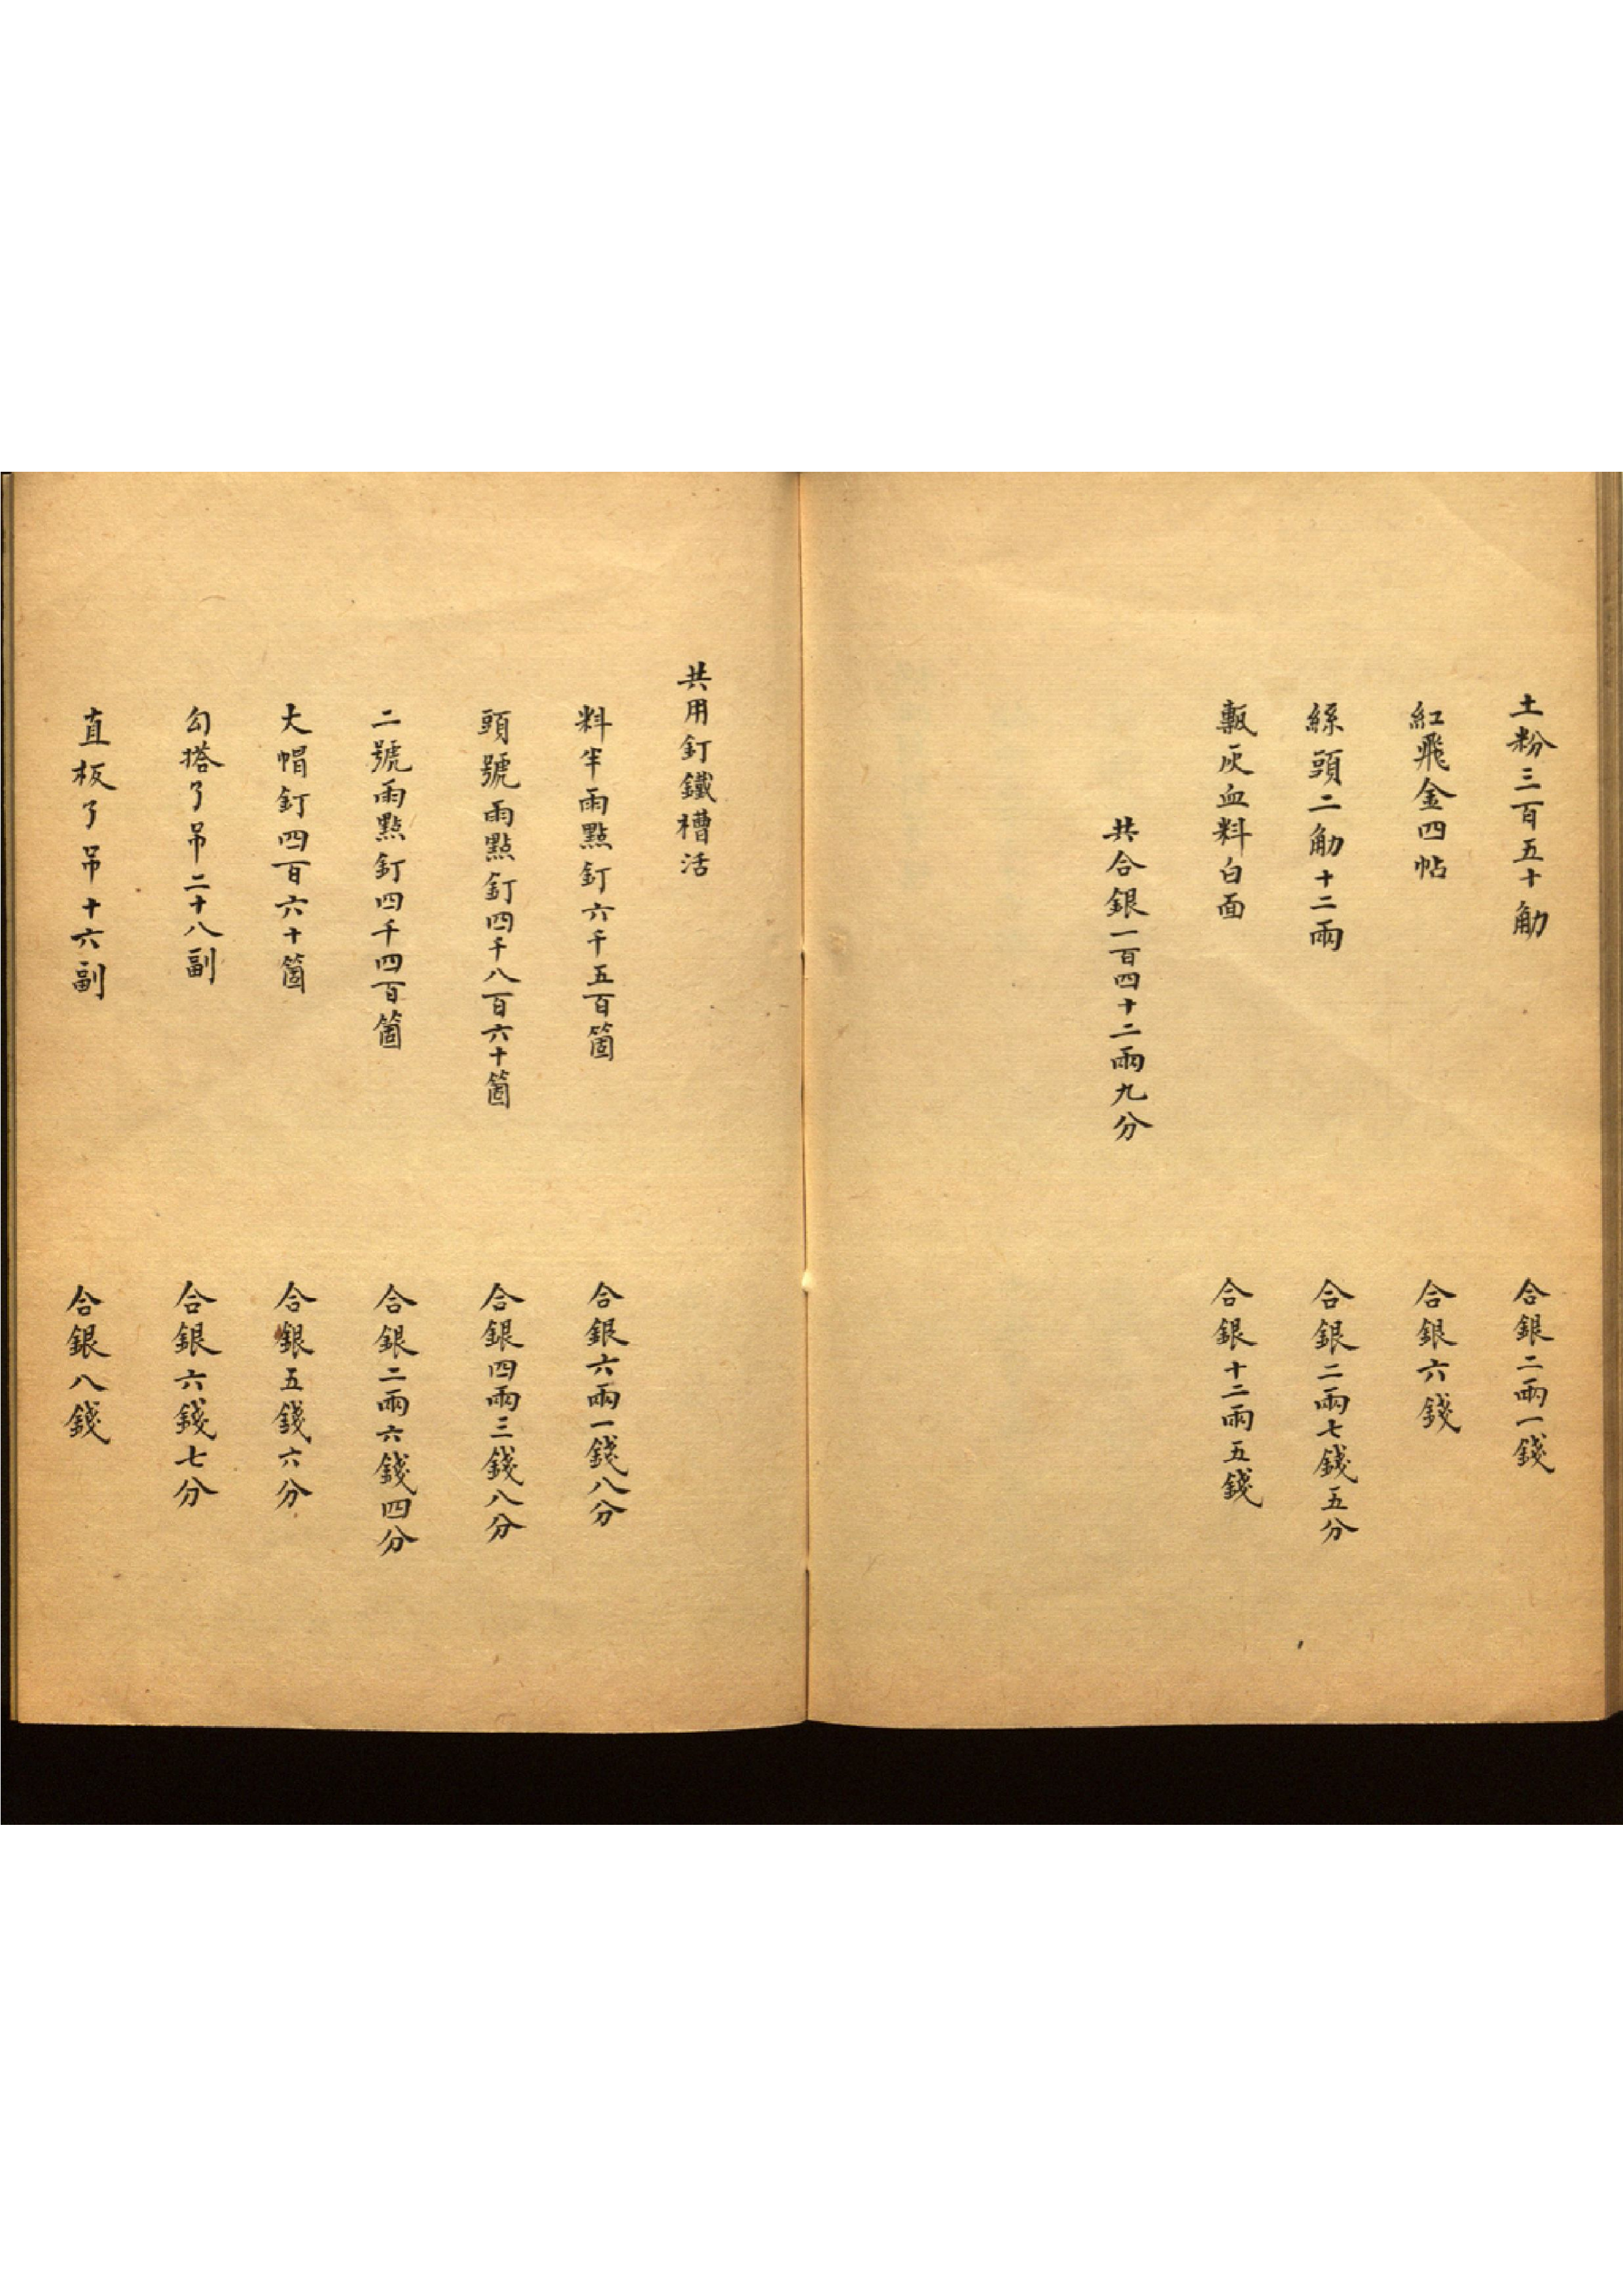 土粉三百五十觔　合銀二兩一錢
紅飛金四帖　合銀六錢
絲頭二觔十二兩　合銀二兩七錢五分
甎灰血料白面　合銀十二兩五錢
共合銀一百四十二兩九分
共用釘鐵槽活
料半雨點釘六千五百箇　合銀六兩一錢八分
頭號雨點釘四千八百六十箇　合銀四兩三錢八分
二號雨點釘四千四百箇　合銀二兩六錢四分
大帽釘四百六十箇　合銀五錢六分
勾搭了吊二十八副　合銀六錢七分
直板了吊十六副　合銀八錢